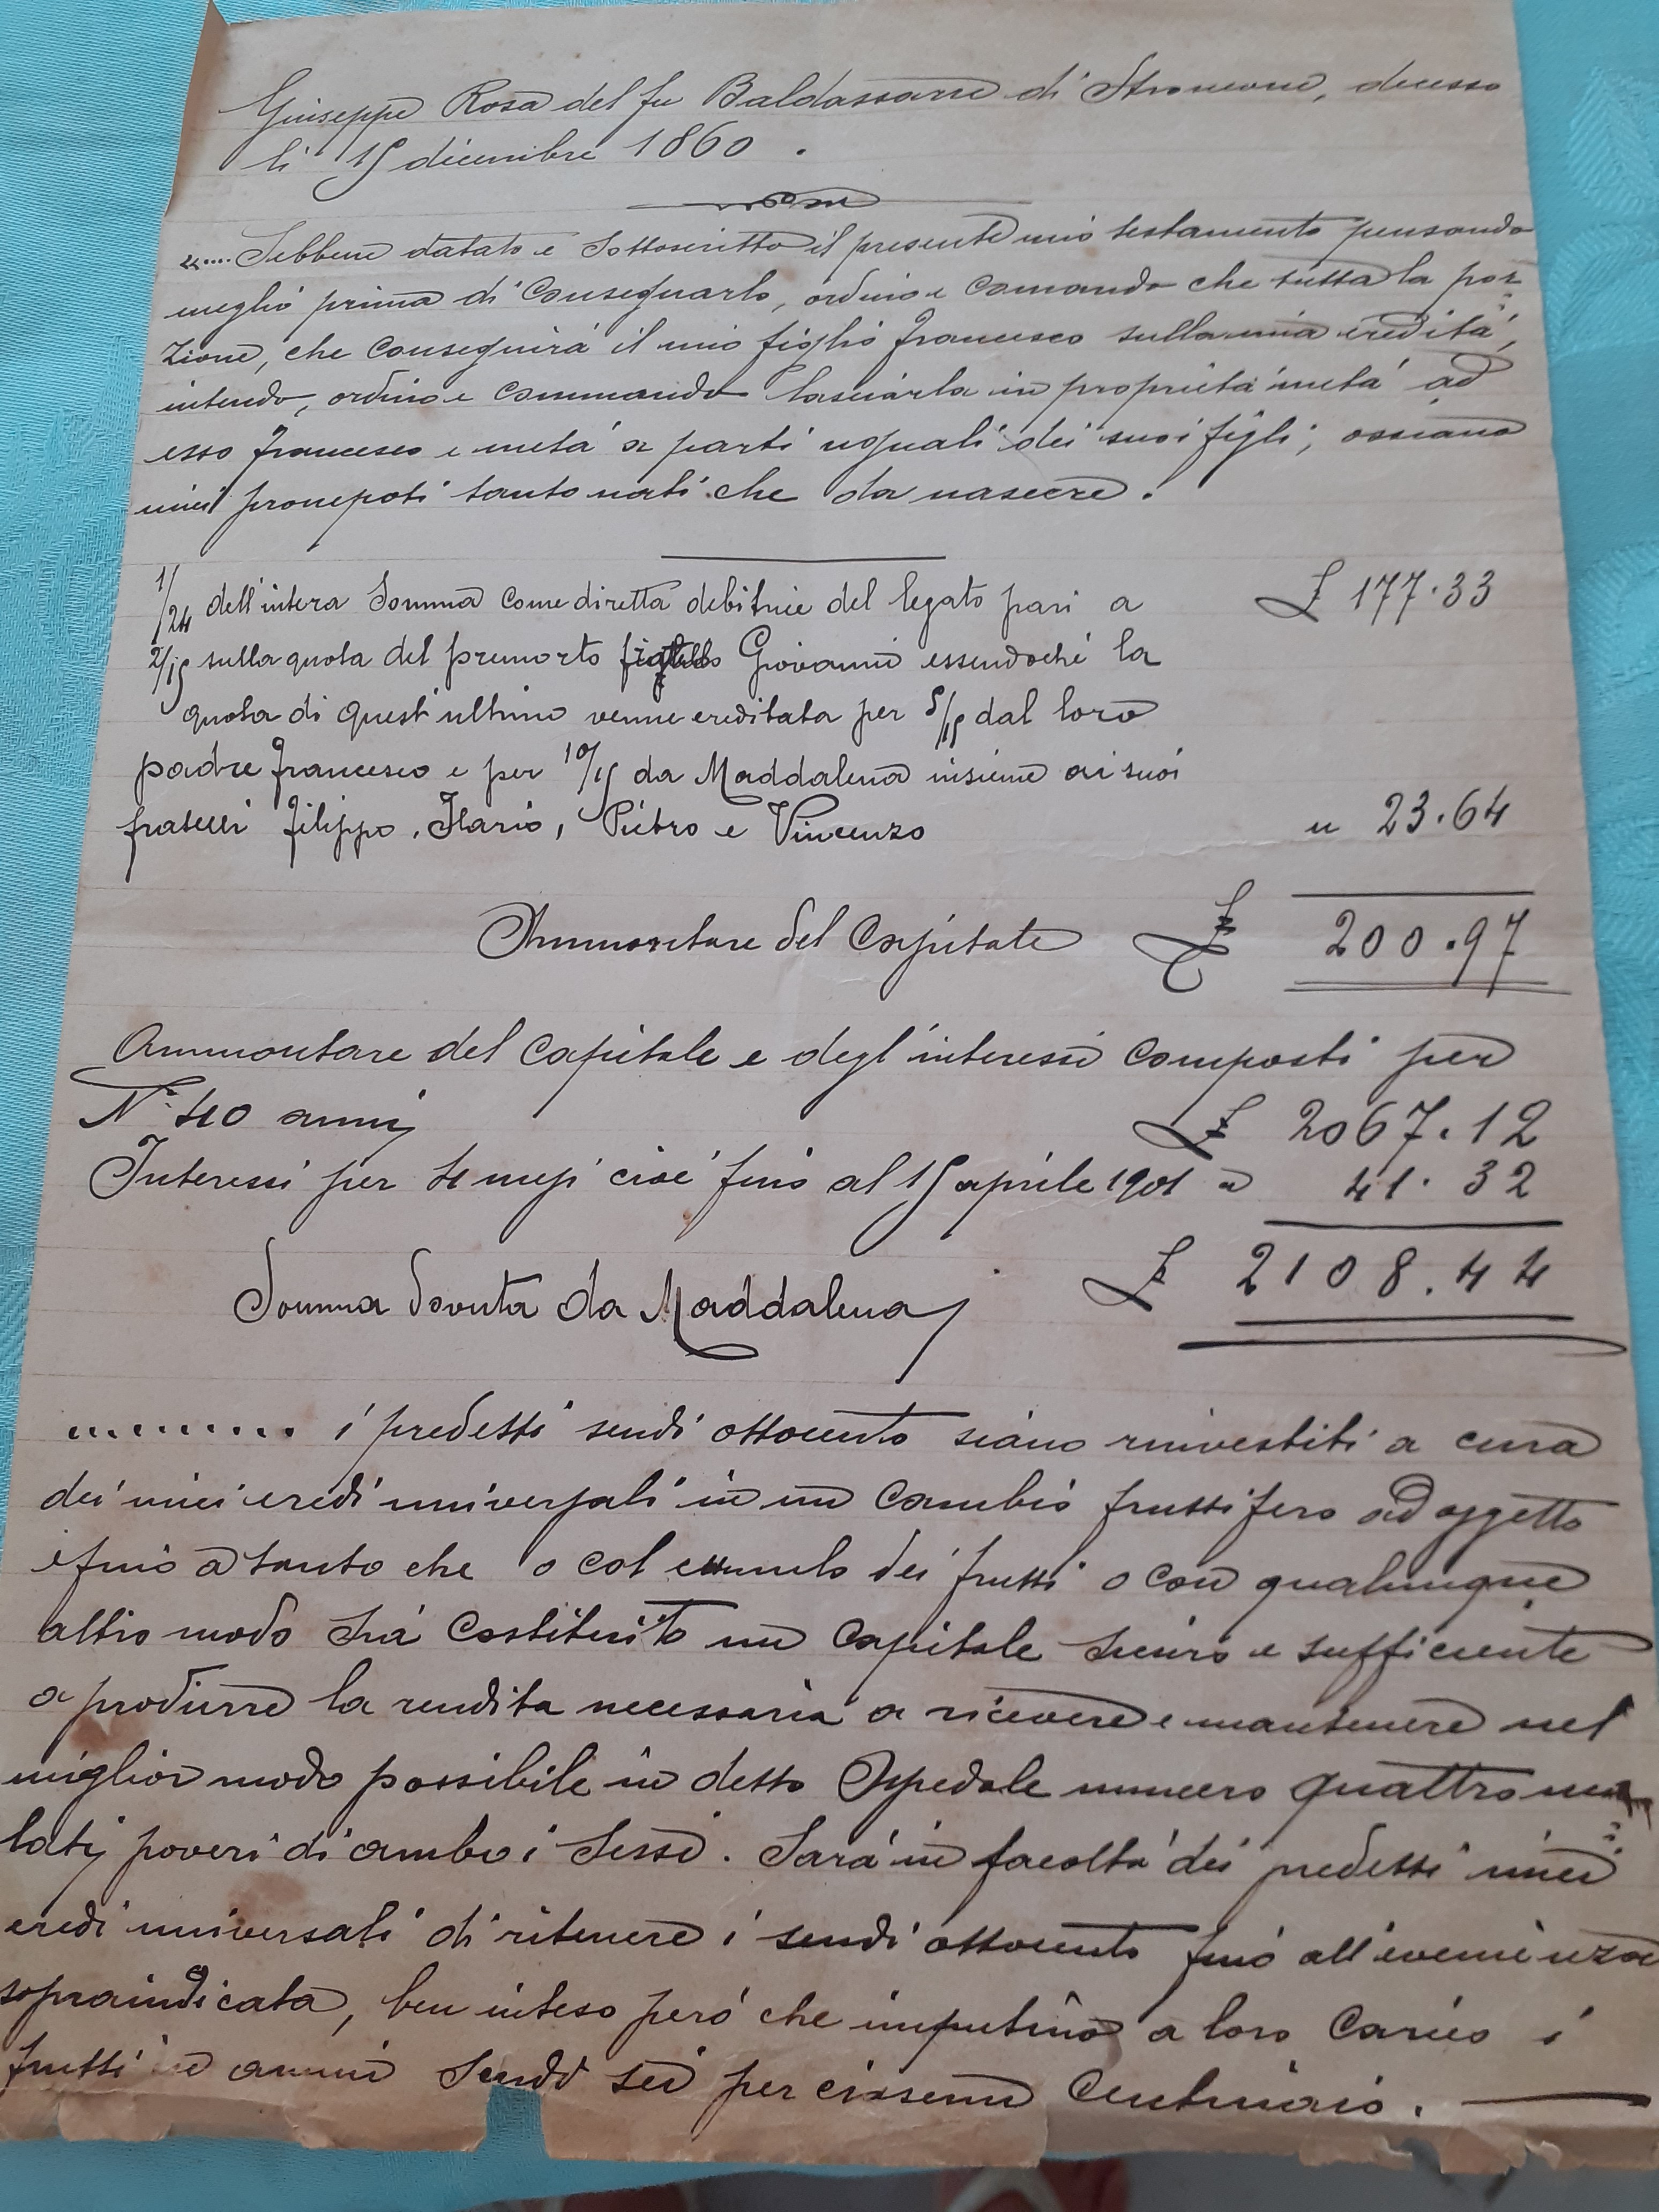 Giuseppe Rosa del fu Baldassarre di Stroncone, decesso
li 15 dicembre 1860.
«.... Sebbene datato e sottoscritto il presente mio testamento pensando
meglio prima di consegnarlo, ordino e comando che tutta la por
zione, che conseguirà il mio figlio Francesco sulla mia eredità,
intendo, ordino e commando lasciarla in proprietà metà ad
esso Francesco e metà a parti uguali dei suoi figli, ossiano
miei pronepoti tanto nati che da nascere.
1/24 dell'intera somma come diretta debitrice del legato pari a £ 177.33
2/15 sulla quota del premorto Giovanni essendoché la
quota di quest'ultimo venne ereditata per 5/15 dal loro
padre Francesco e per 10/15 da Maddalena insieme ai suoi
fratelli Filippo, Ilario, Pietro e Vincenzo " 23.64
Ammontare del Capitale £ 200.97
Ammontare del Capitale e degl'interessi composti per
N° 40 annj £ 2067.12
Interessi per 4 mesi cioè fino al 15 aprile 1901 " 41.32
£ 2108.44
Somma dovuta da Maddalena
.......... i predetti scudi ottocento siano rinvestiti a cura
dei miei eredi universali in un cambio fruttifero ad oggetto
e fino a tanto che o col cumulo dei frutti o con qualunque
altro modo sia costituito un capitale sicuro e sufficiente
a produrre la rendita necessaria a ricevere e mantenere nel
miglior modo possibile in detto Ospedale numero quattro ma
latj poveri di ambo i sessi. Sarà in facoltà dei predetti miei
eredi universali di ritenere i scudi ottocento fino all'evenienza
sopraindicata, ben inteso però che imputino a loro carico i
frutti in annui scudi sei per ciascun centinaio.